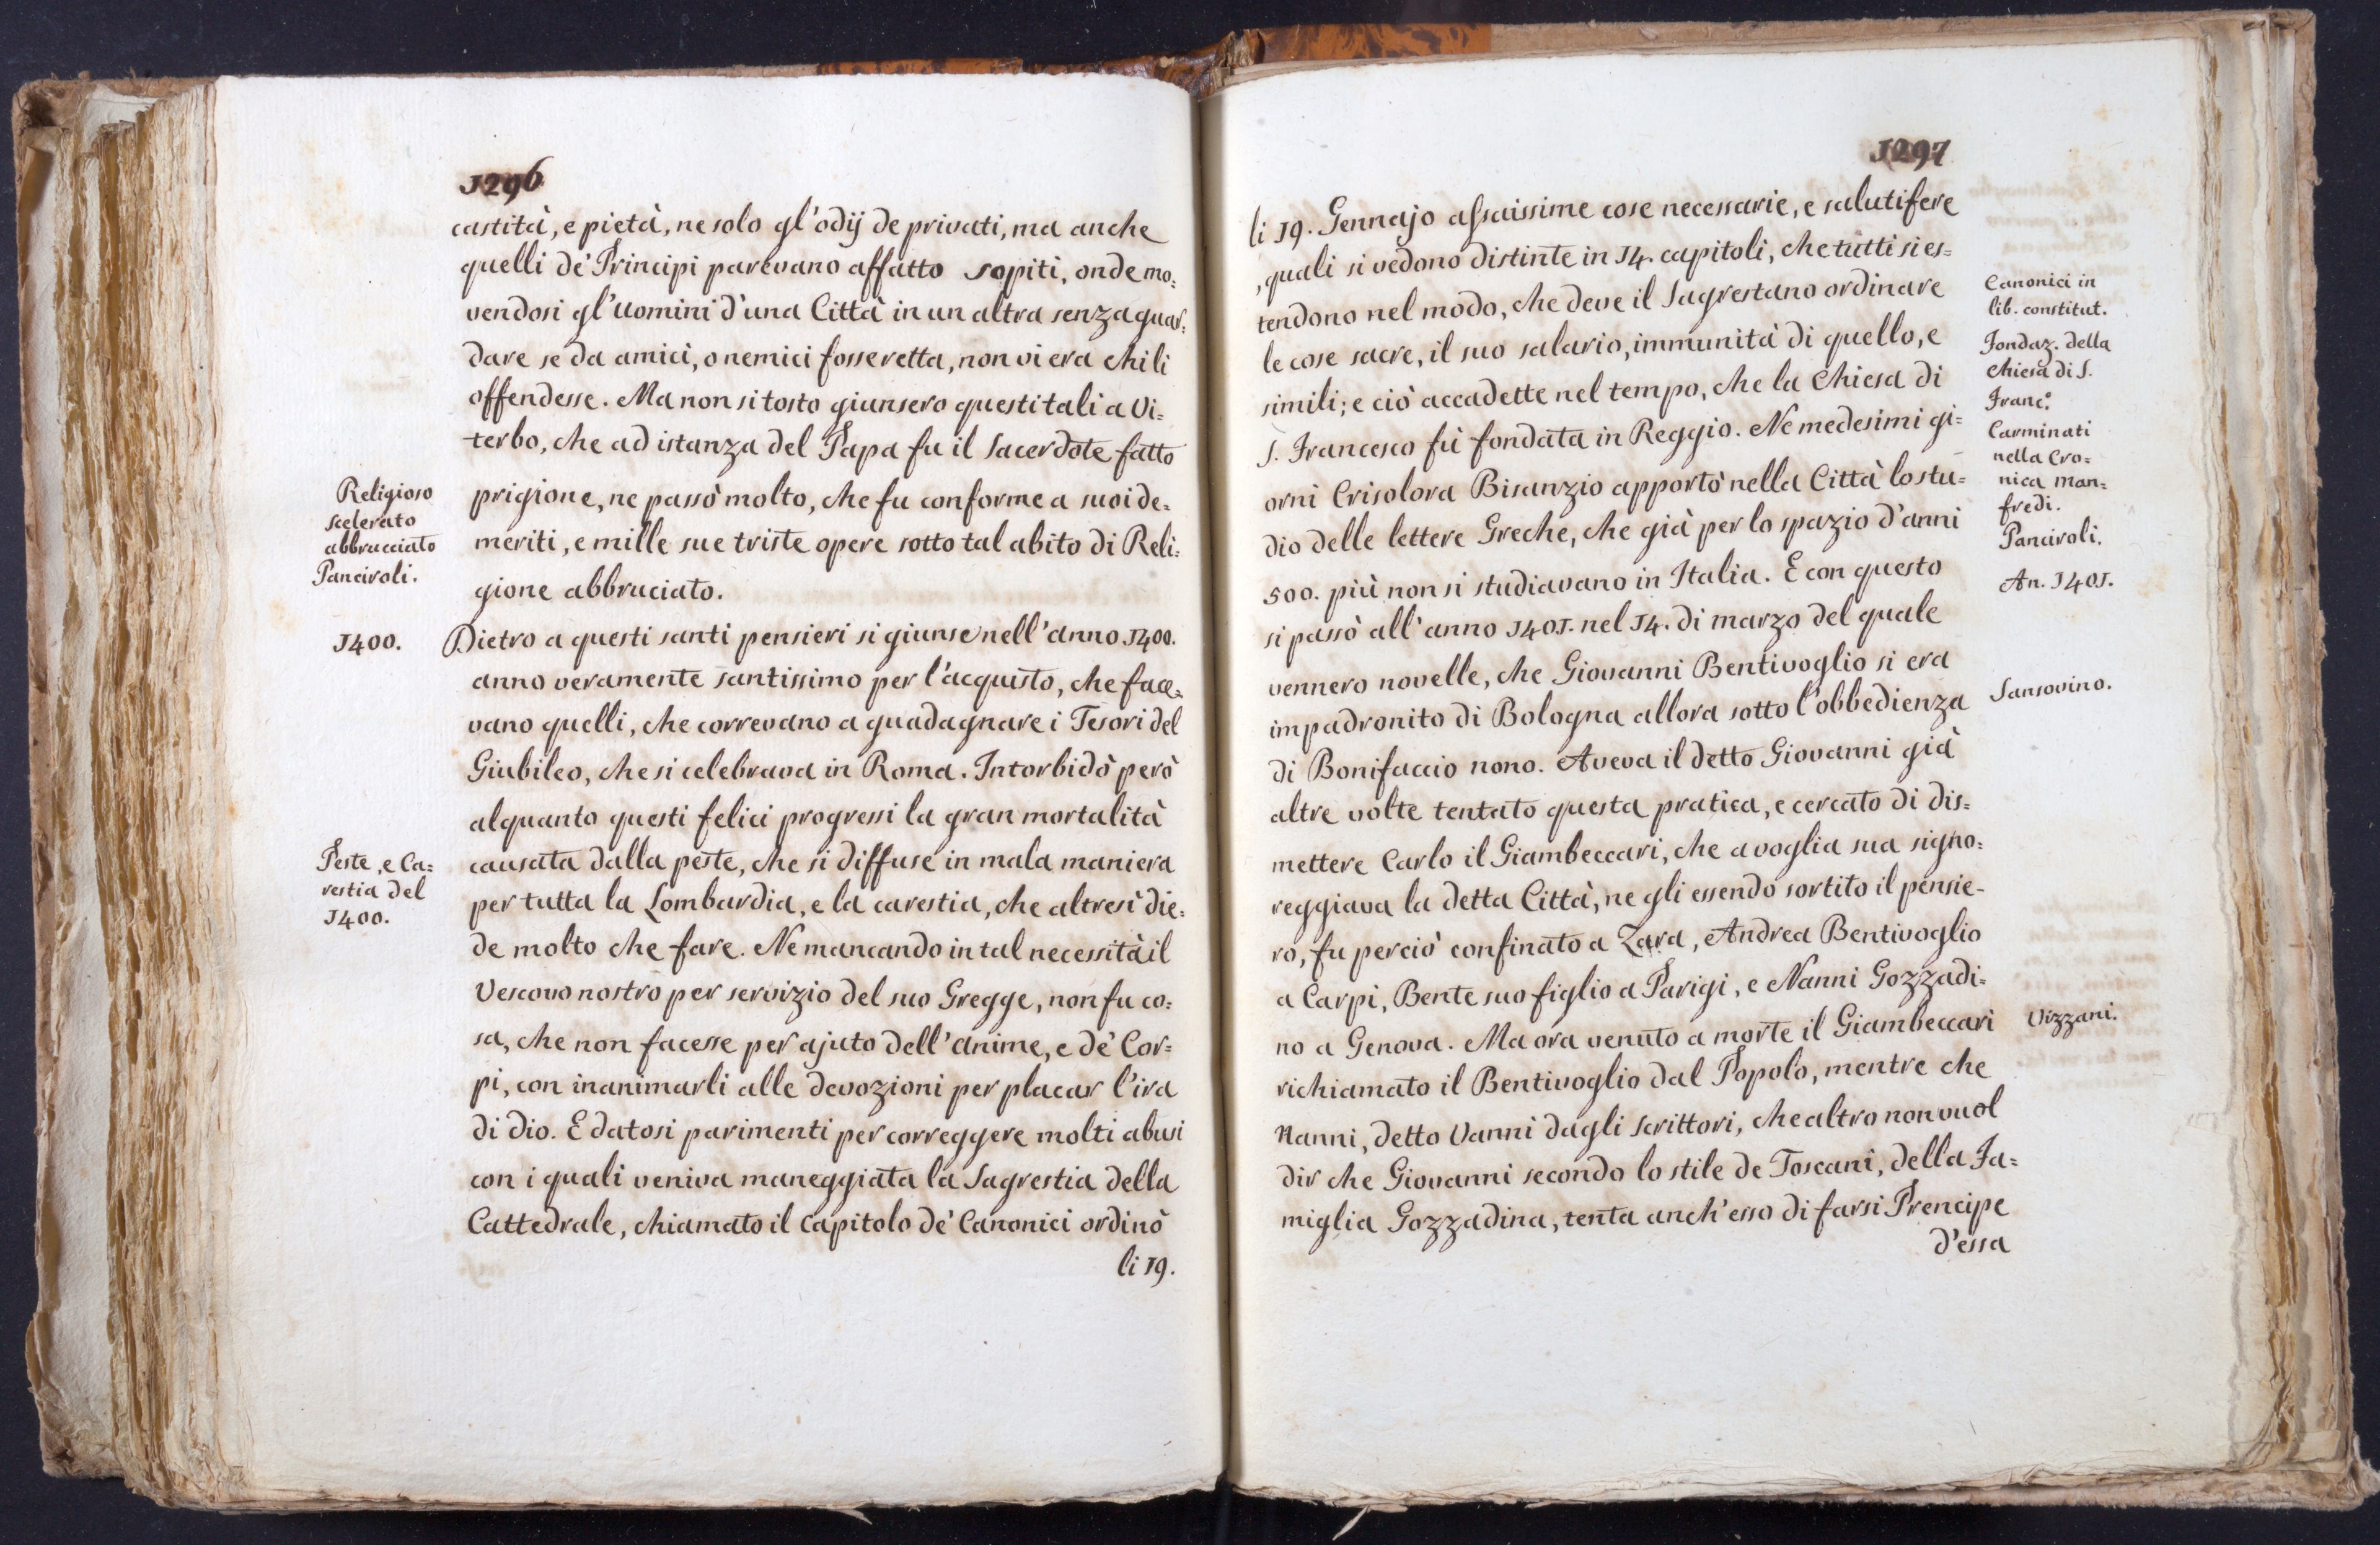 1296
castità, e pietà, ne solo gl'odij de privati, ma anche
quelli de' Principi parevano affatto sopiti, onde mo=
vendosi gl'uomini d'una Città in un altra senza guar=
dare se da amici, o nemici fosse retta, non vi era chi li
offendesse. Ma non si tosto giunsero questi tali a Vi=
terbo, che ad istanza del Papa fu il Sacerdote fatto
prigione, ne passò molto, che fu conforme a suoi de=
meriti, e mille sue triste opere sotto tal abito di Reli=
gione abbruciato.
Religioso
scelerato
abbrucciato
Panciroli.
1400.
Dietro a questi santi pensieri si giunse nell'anno 1400.
anno veramente santissimo per l'acquisto, che face=
vano quelli, che correvano a guadagnare i Tesori del
Giubileo, che si celebrava in Roma. Intorbidò però
alquanto questi felici progressi la gran mortalità
causata dalla peste, che si diffuse in mala maniera
per tutta la Lombardia, e la carestia, che altresì die=
de molto chè fare. Ne mancando in tal necessità il
Vescovo nostro per servizio del suo Gregge, non fu co=
sa, che non facesse per ajuto dell'anime, e de' Cor=
pi, con inanimarli alle devozioni per placar l'ira
di dio. E datosi parimenti per correggere molti abusi
con i quali veniva maneggiata la Sagrestia della
Cattedrale, chiamato il Capitolo de' Canonici ordinò
li 19.
Peste, e Ca=
restia del
1400.
1297
li 19. Gennajo assaissime cose necessarie, e salutifere
, quali si vedono distinte in 14. capitoli, che tutti si es=
tendono nel modo, che deve il Sagrestano ordinare
le cose sacre, il suo salario, immunità di quello, e
simili; e ciò accadette nel tempo, che la Chiesa di
S. Francesco fù fondata in Reggio. Ne medesimi gi=
orni Crisolora Bisanzio apportò nella Città lo stu=
dio delle lettere Greche, che già per lo spazio d'anni
500. più non si studiavano in Italia. E con questo
si passò all'anno 1401. nel 14. di marzo del quale
vennero novelle, che Giovanni Bentivoglio si era
impadronito di Bologna allora sotto l'obbedienza
di Bonifaccio nono. Aveva il detto Giovanni già
altre volte tentato questa pratica, e cercato di dis=
mettere Carlo il Giambeccari, che a voglia sua signo=
reggiava la detta Città, ne gli essendo sortito il pensie-
ro, fu perciò confinato a Zara, Andrea Bentivoglio
a Carpi, Bente suo figlio a Parigi, e Nanni Gozzadi=
no a Genova. Ma ora venuto a morte il Giambeccari
richiamato il Bentivoglio dal Popolo, mentre che
Nanni, detto Vanni dagli scrittori, che altro non vuol
dir che Giovanni secondo lo stile de Toscani, della Fa=
miglia Gozzadina, tenta anch'esso di farsi Prencipe
d'essa
Canonici in
lib. constitut.
Fondaz. della
chiesa di S.
Franc.º
Carminati
nella Cro=
nica man=
fredi.
Panciroli.
An. 1401.
Sansovino.
Vizzani.